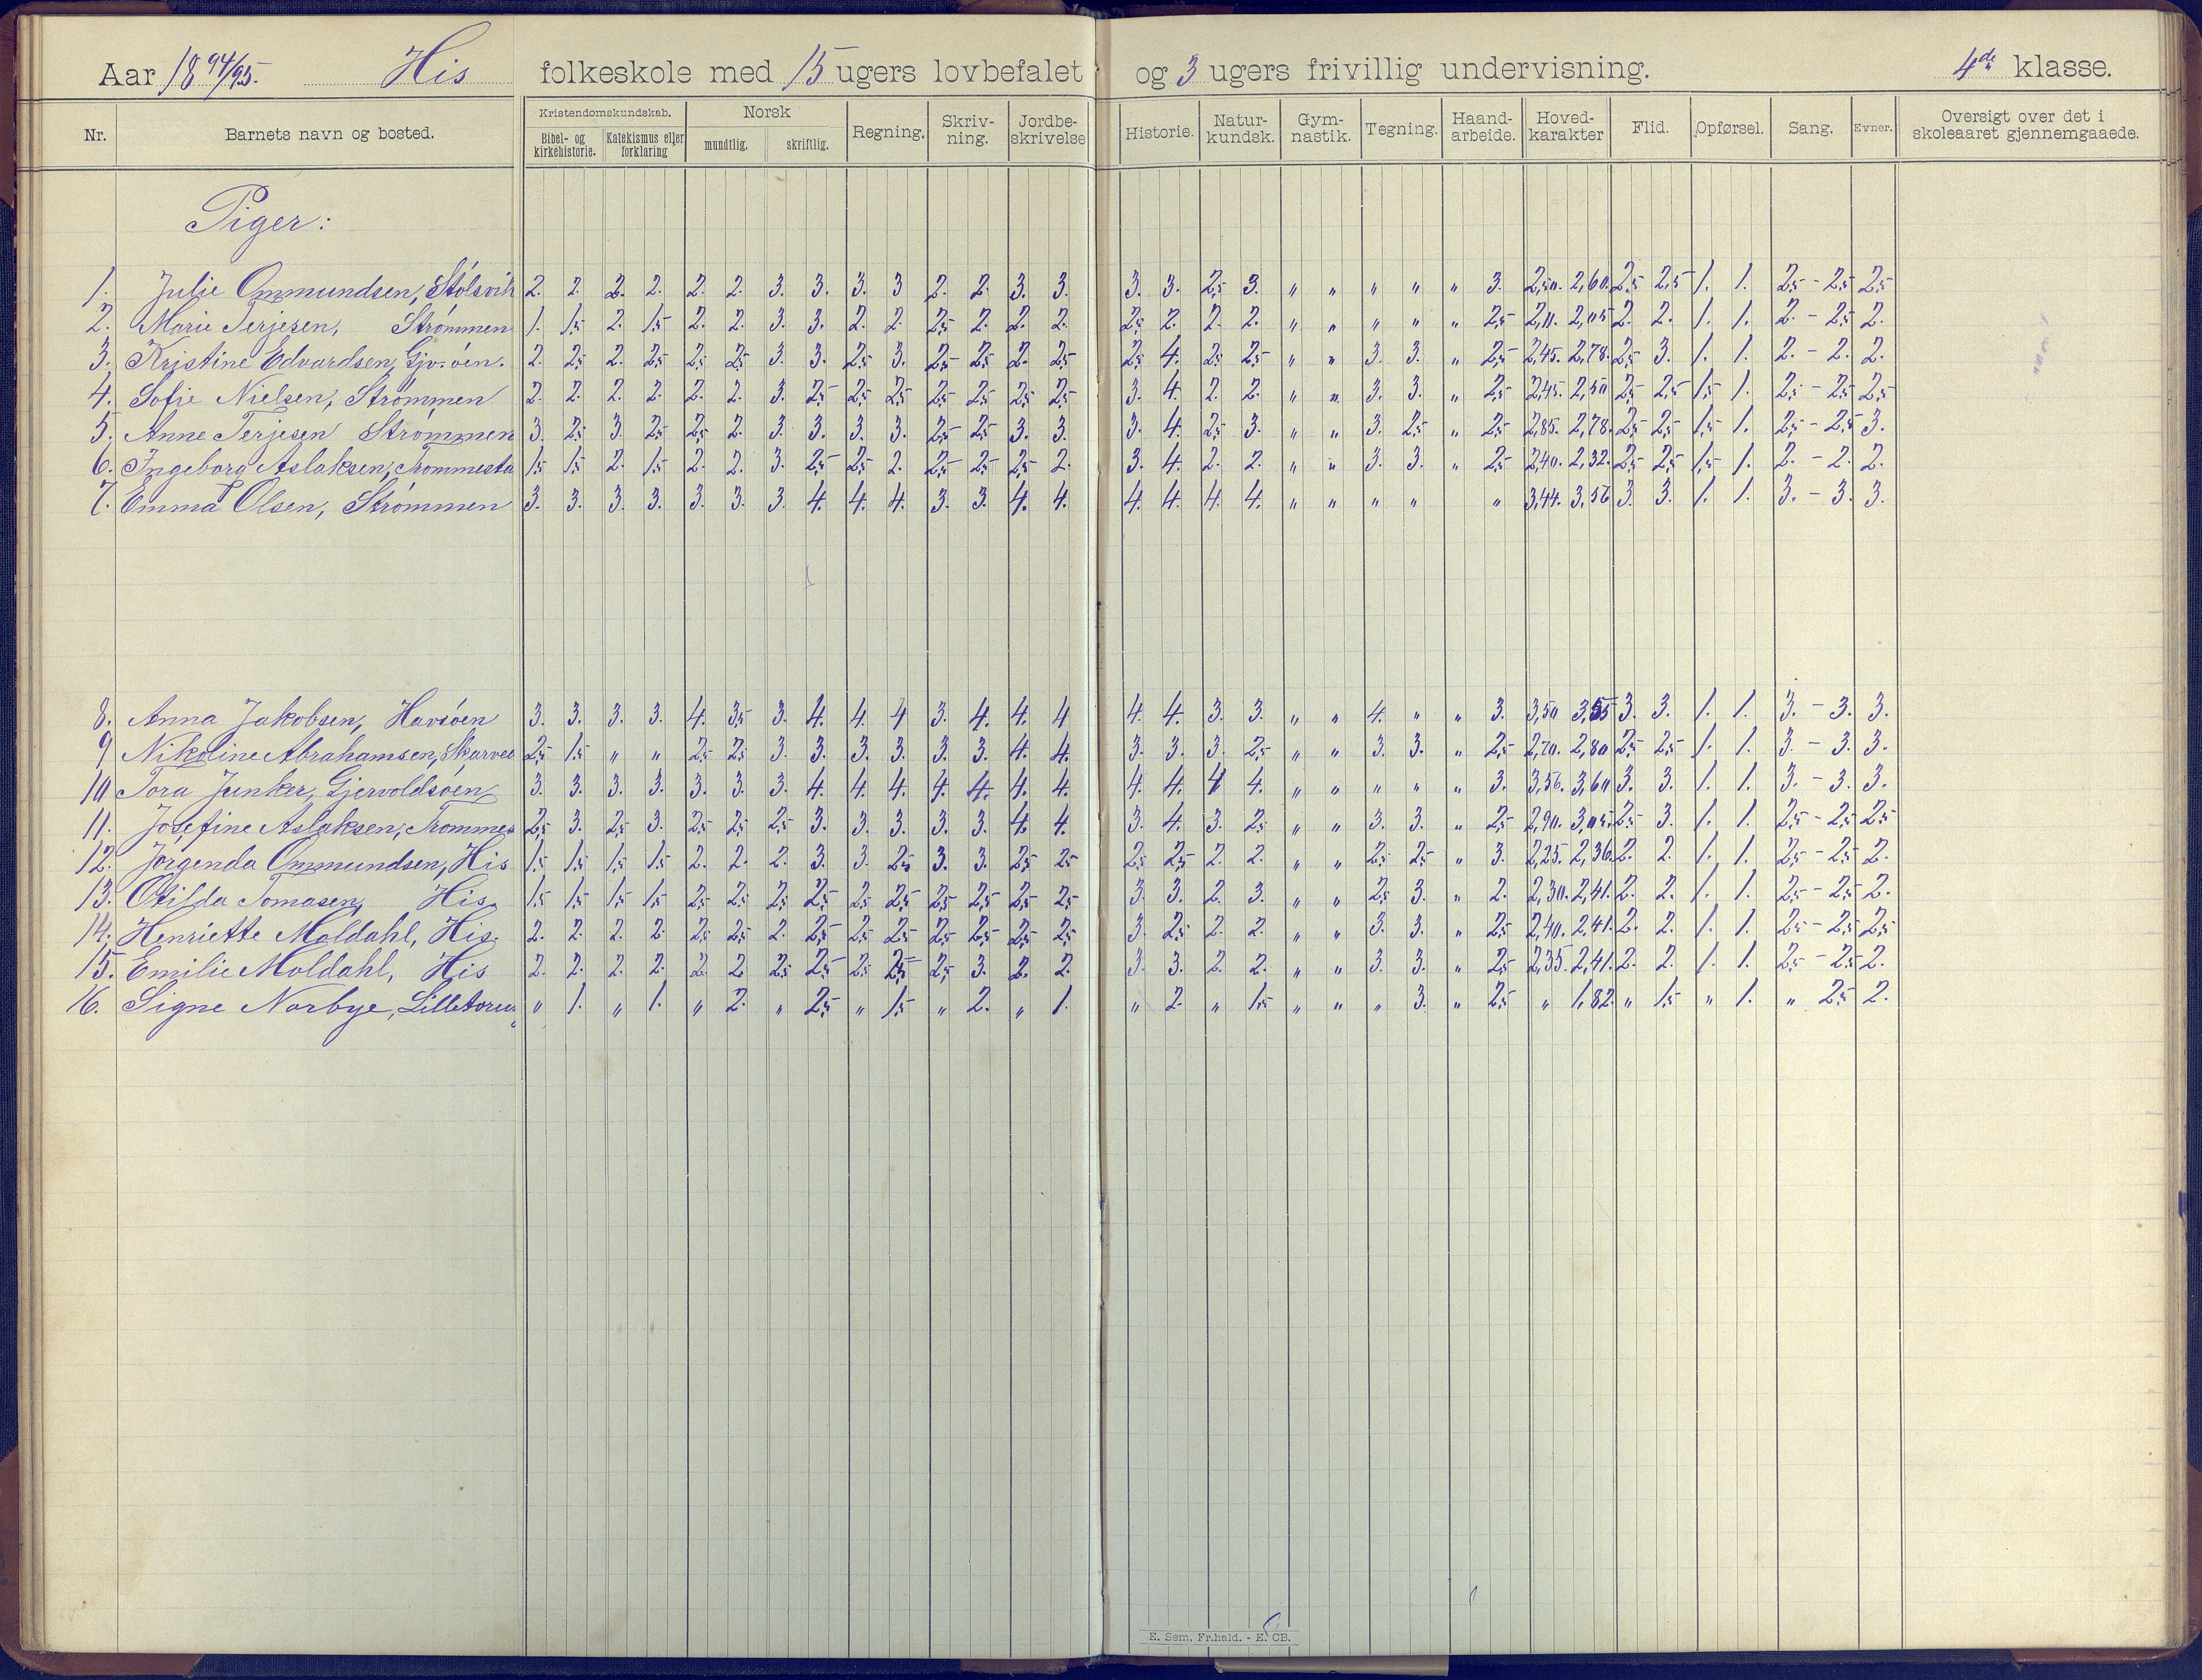 Aar 1894/95. His folkeskole med 15 ugers lovbefalet og 3 ugers frivillig undervisning. 4de klasse.
Nr. Barnets navn og bosted. Kristendomskundskab. Bibel- og kirkehistorie. Katekismus eller forklaring Norsk mundtlig. skriftlig. Regning. Skriv-ning. Jordbe-skrivelse Historie. Natur-kundsk. Gym-nastik. Tegning. Haand-arbeide. Hoved-karakter Flid. Opførsel. Sang. Evner. Oversigt over det i skoleaaret gjennemgaaede.
Piger:
1. Julie Ommundsen, Stølsvik 2. 2. 2. 2. 2. 2. 3. 3. 3. 3 2. 2. 3. 3. 3. 3. 2,5 3. " " " " " 3. 2,50. 2,60. 2,5 2,5 1. 1. 2,5 - 2,5 2,5
2. Marie Terjesen, Strømmen 1. 1,5 2. 1,5 2. 2. 3. 3. 2. 2. 2,5 2. 2. 2. 2,5 2. 2. 2. " " " " " 2,5 2,11. 2,05 2. 2. 1. 1. 2. - 2,5 2.
3. Kristine Edvardsen, Gjv.øen. 2. 2,5 2. 2,5 2,5 2,5 3. 3. 2,5 3. 2,5 2,5 2. 2,5 2,5 4. 2,5 2,5 " " 3. 3. " 2,5 2,45. 2,78. 2,5 3. 1. 1. 2. - 2. 2.
4. Sofie Nielsen, Strømmen 2. 2. 2. 2. 2. 2. 3. 2,5 2,5 2,5 2,5 2,5 2,5 2,5 3. 4. 2. 2. " " 3. 3. " 2,5 2,45. 2,50 2,5 2,5 1,5 1. 2,5 - 2,5 2,5
5. Anne Terjesen Strømmen 3. 2,5 3. 2,5 2,5 2. 3. 3. 3. 3. 2,5 2,5 3. 3. 3. 4. 2,5 3. " " 3. 2,5 " 2,5 2,85. 2,78. 2,5 2,5 1,5 1. 2,5 - 2,5 3.
6. Ingeborg Aslaksen, Trommesta 1,5 1,5 2. 1,5 2. 2. 3. 2,5 2,5 2. 2,5 2,5 2,5 2. 3. 4. 2. 2. " " 3. 3. " 2,5 2,40. 2,32. 2,5 2,5 1,5 1. 2. - 2. 2.
7. Emma Olsen, Strømmen 3. 3. 3. 3. 3. 3. 3. 4. 4. 4. 3. 3. 4. 4. 4. 4. 4. 4. " " " " " 3,44. 3,56 3. 3. 1. 1. 3. - 3. 3.
8. Anna Jakobsen, Havsøen 3. 3. 3. 3. 4. 3,5 3. 4. 4. 4 3. 4. 4. 4 4. 4. 3. 3. " " 4. " " 3. 3,50 3,55 3. 3. 1. 1. 3. - 3. 3.
9 Nikoline Abrahamsen, Skarves 2,5 1,5 " " 2,5 2,5 3. 3. 3. 3. 3. 3. 4. 4. 3. 3. 3. 2,5 " " 3. 3. " 2,5 2,70. 2,80 2,5 2,5 1. 1. 3. - 3. 3.
10 Tora Junker, Gjervoldsøen 3. 3. 3. 3. 3. 3. 3. 4. 4. 4. 4. 4. 4. 4. 4. 4. 4 4. " " " " " 3. 3,56. 3,60 3. 3. 1. 1. 3. - 3. 3.
11. Josefine Aslaksen, Trommes 2,5 3. 2,5 3. 2,5 2,5 2,5 3. 3. 3. 3. 3. 4. 4. 3. 4. 3. 2,5 " " 3. 3. " 2,5 2,90. 3,05. 2,5 3. 1. 1. 2,5 - 2,5 2,5
12. Jørgenda Ommundsen, His 1,5 1,5 1,5 1,5 2. 2. 2. 3. 3. 2,5 3. 3. 2,5 2,5 2,5 2,5 2. 2. " " 2,5 2,5 " 3. 2,25. 2,36. 2. 2. 1. 1. 2,5 - 2,5 2.
13. Otilda Tomasen, His 1,5 1,5 1,5 1,5 2,5 2,5 2,5 2,5 2,5 2,5 2,5 2,5 2,5 2,5 3. 3. 2. 3. " " 2,5 3. " 2. 2,30. 2,41. 2. 2. 1. 1. 2,5 - 2,5 2.
14. Henriette Moldahl, His. 2. 2. 2. 2. 2,5 2,5 2. 2,5 2,5 2,5 2,5 2,5 2,5 2,5 3. 2,5 2. 2. " " 3. 3. " 2,5 2,40. 2,41. 2. 2. 1. 1. 2,5 - 2,5 2,5
15. Emilie Moldahl, His 2. 2. 2. 2. 2. 2. 2,5 2,5 2,5 2,5 2,5 3. 2. 2. 3. 3. 2. 2. " " 3. 3. " 2,5 2,35. 2,41. 2. 2. 1. 1. 2,5 - 2,5 2.
16. Signe Norbye, Lilletorun " 1. " 1. " 2. " 2,5 " 1,5 " 2. " 1. " 2. " 1,5 " " " 3. " 2,5 " 1,82. " 1,5 " 1. " 2,5 2.
E. Sem, Fr.hald. - E. CB.